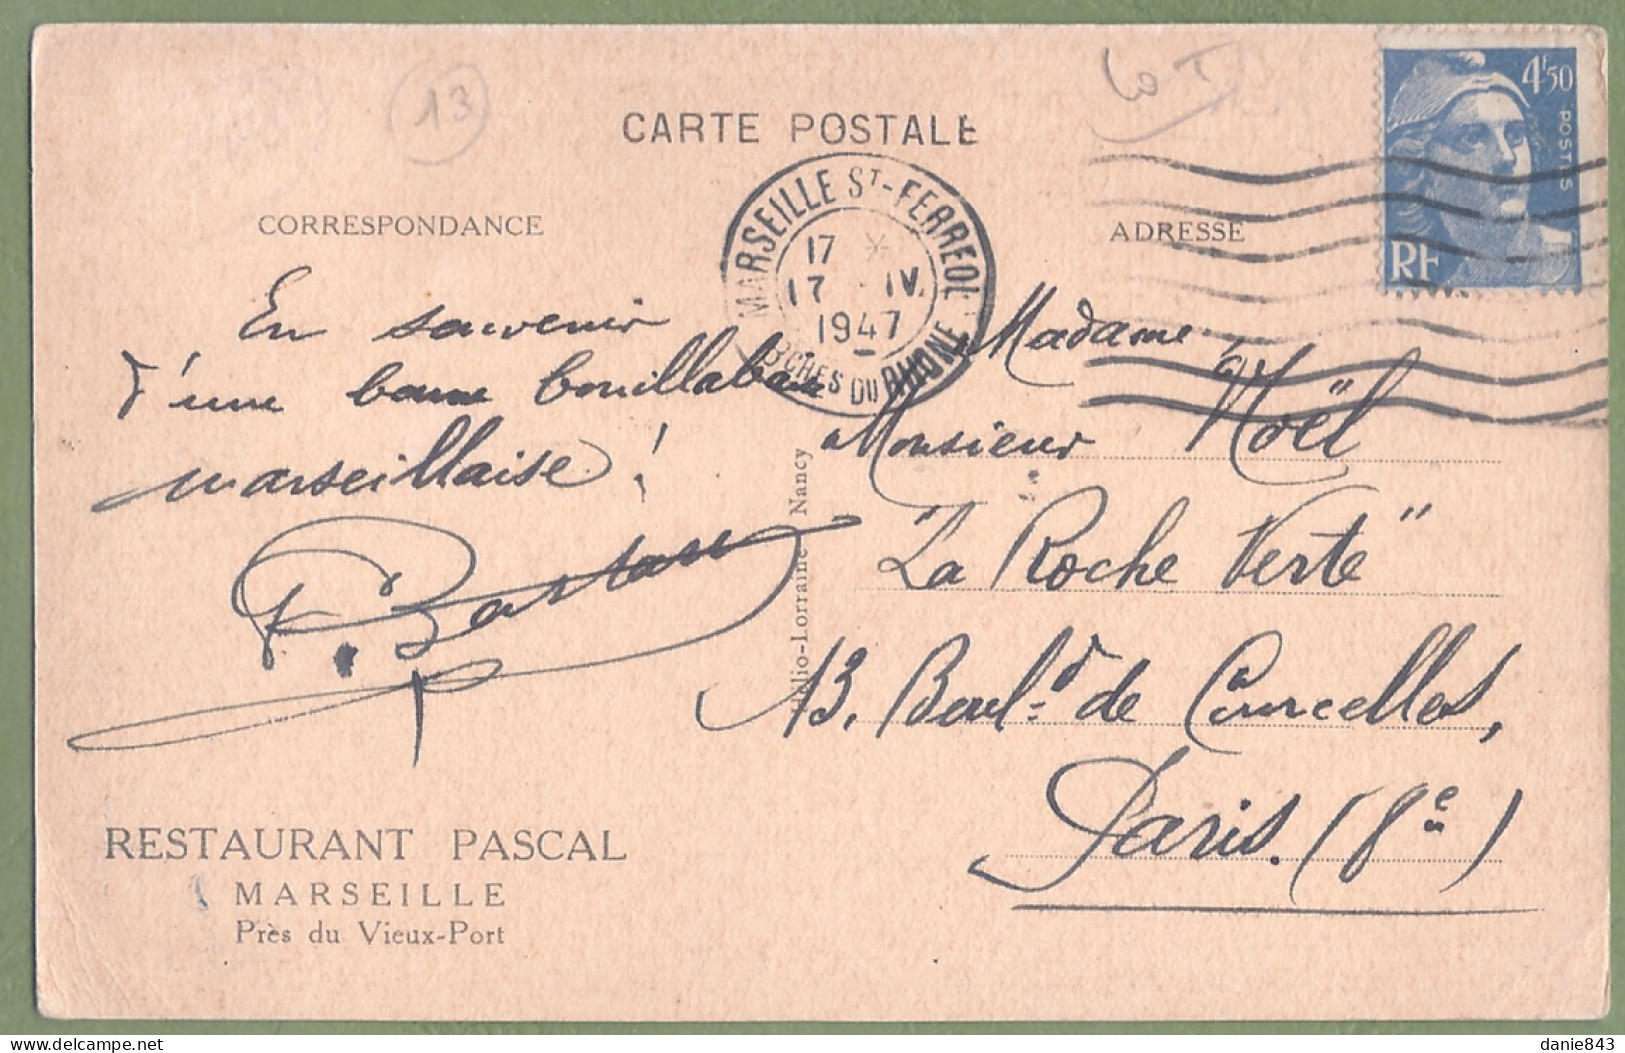 13
CARTE POSTALE
4F50
POSTES
RF
MARSEILLE ST-FERREOL
17 *
17 IV.
1947
BCHES DU RHONE
CORRESPONDANCE
ADRESSE
En souvenir
d'une bonne bouillabaisse
marseillaise !
Madame,
Monsieur Noël
"La Roche Verte"
13, Boul.d de Courcelles,
Paris. (8e)
Hélio-Lorraine Nancy
RESTAURANT PASCAL
MARSEILLE
Près du Vieux-Port
delcampe.net
danie843